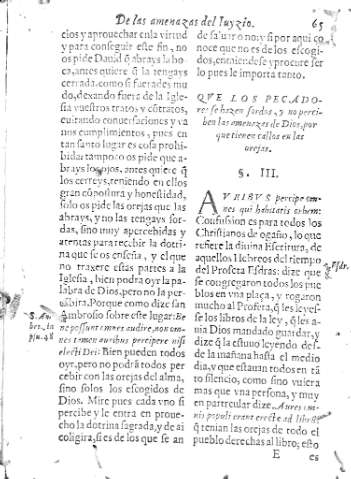 De las amenazas del Iuyzio. 65
cios y aprouechar en la virtud
y para conseguir este fin, no
os pide Dauid q̃ abrays la bo
ca, antes quiere q̃ la tengays
cerrada, como si fuerades mu
do, dexando fuera de la Igle-
sia vuestros tratos y cõtratos,
euitando conuersaciones y va
nos cumplimientos, pues en
tan santo lugar es cosa prohi-
bida: tampoco os pide que a-
brays los ojos, antes quiere q̃
los cerreys, teniendo en ellos
gran cõpostura y honestidad,
solo os pide las orejas que las
abrays, y no las tengays sor-
das, sino muy apercebidas y
atentas para recebir la dotri-
na que se os enseña, y el que
no traxere estas partes a la
Iglesia, bien podra oyr la pa-
labra de Dios, pero no la per-
cibira. Porque como dize san
Ambrosio sobre este lugar: Et
ne possunt omnes audire, non om-
nes tamen auribus percipere nisi
electi Dei: Bien pueden todos
oyr, pero no podrã todos per
cebir con las orejas del alma,
sino solos los escogidos de
Dios. Mire pues cada vno si
percibe y le entra en proue-
cho la dotrina sagrada, y de ai
coligira, si es de los que se an
S. Am
bro. in
psa. 48
de saluar o no: y si por aqui co
noce que no es de los escogi-
dos, enmiendese y procure ser
lo pues le importa tanto.
QVE LOS PECADO-
res se hazen sordos, y no perci-
ben las amenazas de Dios, por
que tienen callos en las
orejas.
§. III.
AVRIBVS percipite om-
nes qui habitatis orbem:
Confusion es para todos los
Christianos de ogaño, lo que
refiere la diuina Escritura, de
aquellos libreros del tiempo
del Profeta Esdras: dize que
se congregaron todos los pue
blos en una plaça, y rogaron
mucho al Profeta, q̃ les leyes-
se los libros de la ley, q̃ les a-
uia Dios mandado guardar, y
dize q̃ la estuuo leyendo des-
de la mañana hasta el medio
dia, y que estauan todos en tã
to silencio, como sino vuiera
mas que vna persona, y muy
en particular dize. Aures om-
nis populi erant erectæ ad librũ
q̃ tenian las orejas de todo el
pueblo derechas al libro; esto
Esdr.
E es